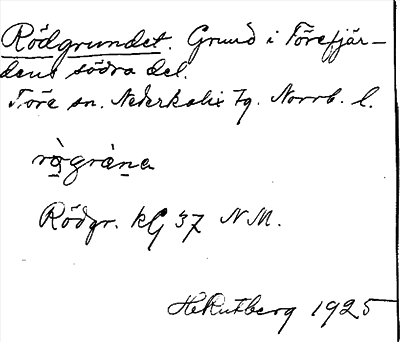 Rödgrundet. Grund i Törefjär-
dens södra del.
Töre sn. Nederkalix tg. Norrb. l.
rògràna
Rödgr. kG 37 NM.
H Rutberg 1925